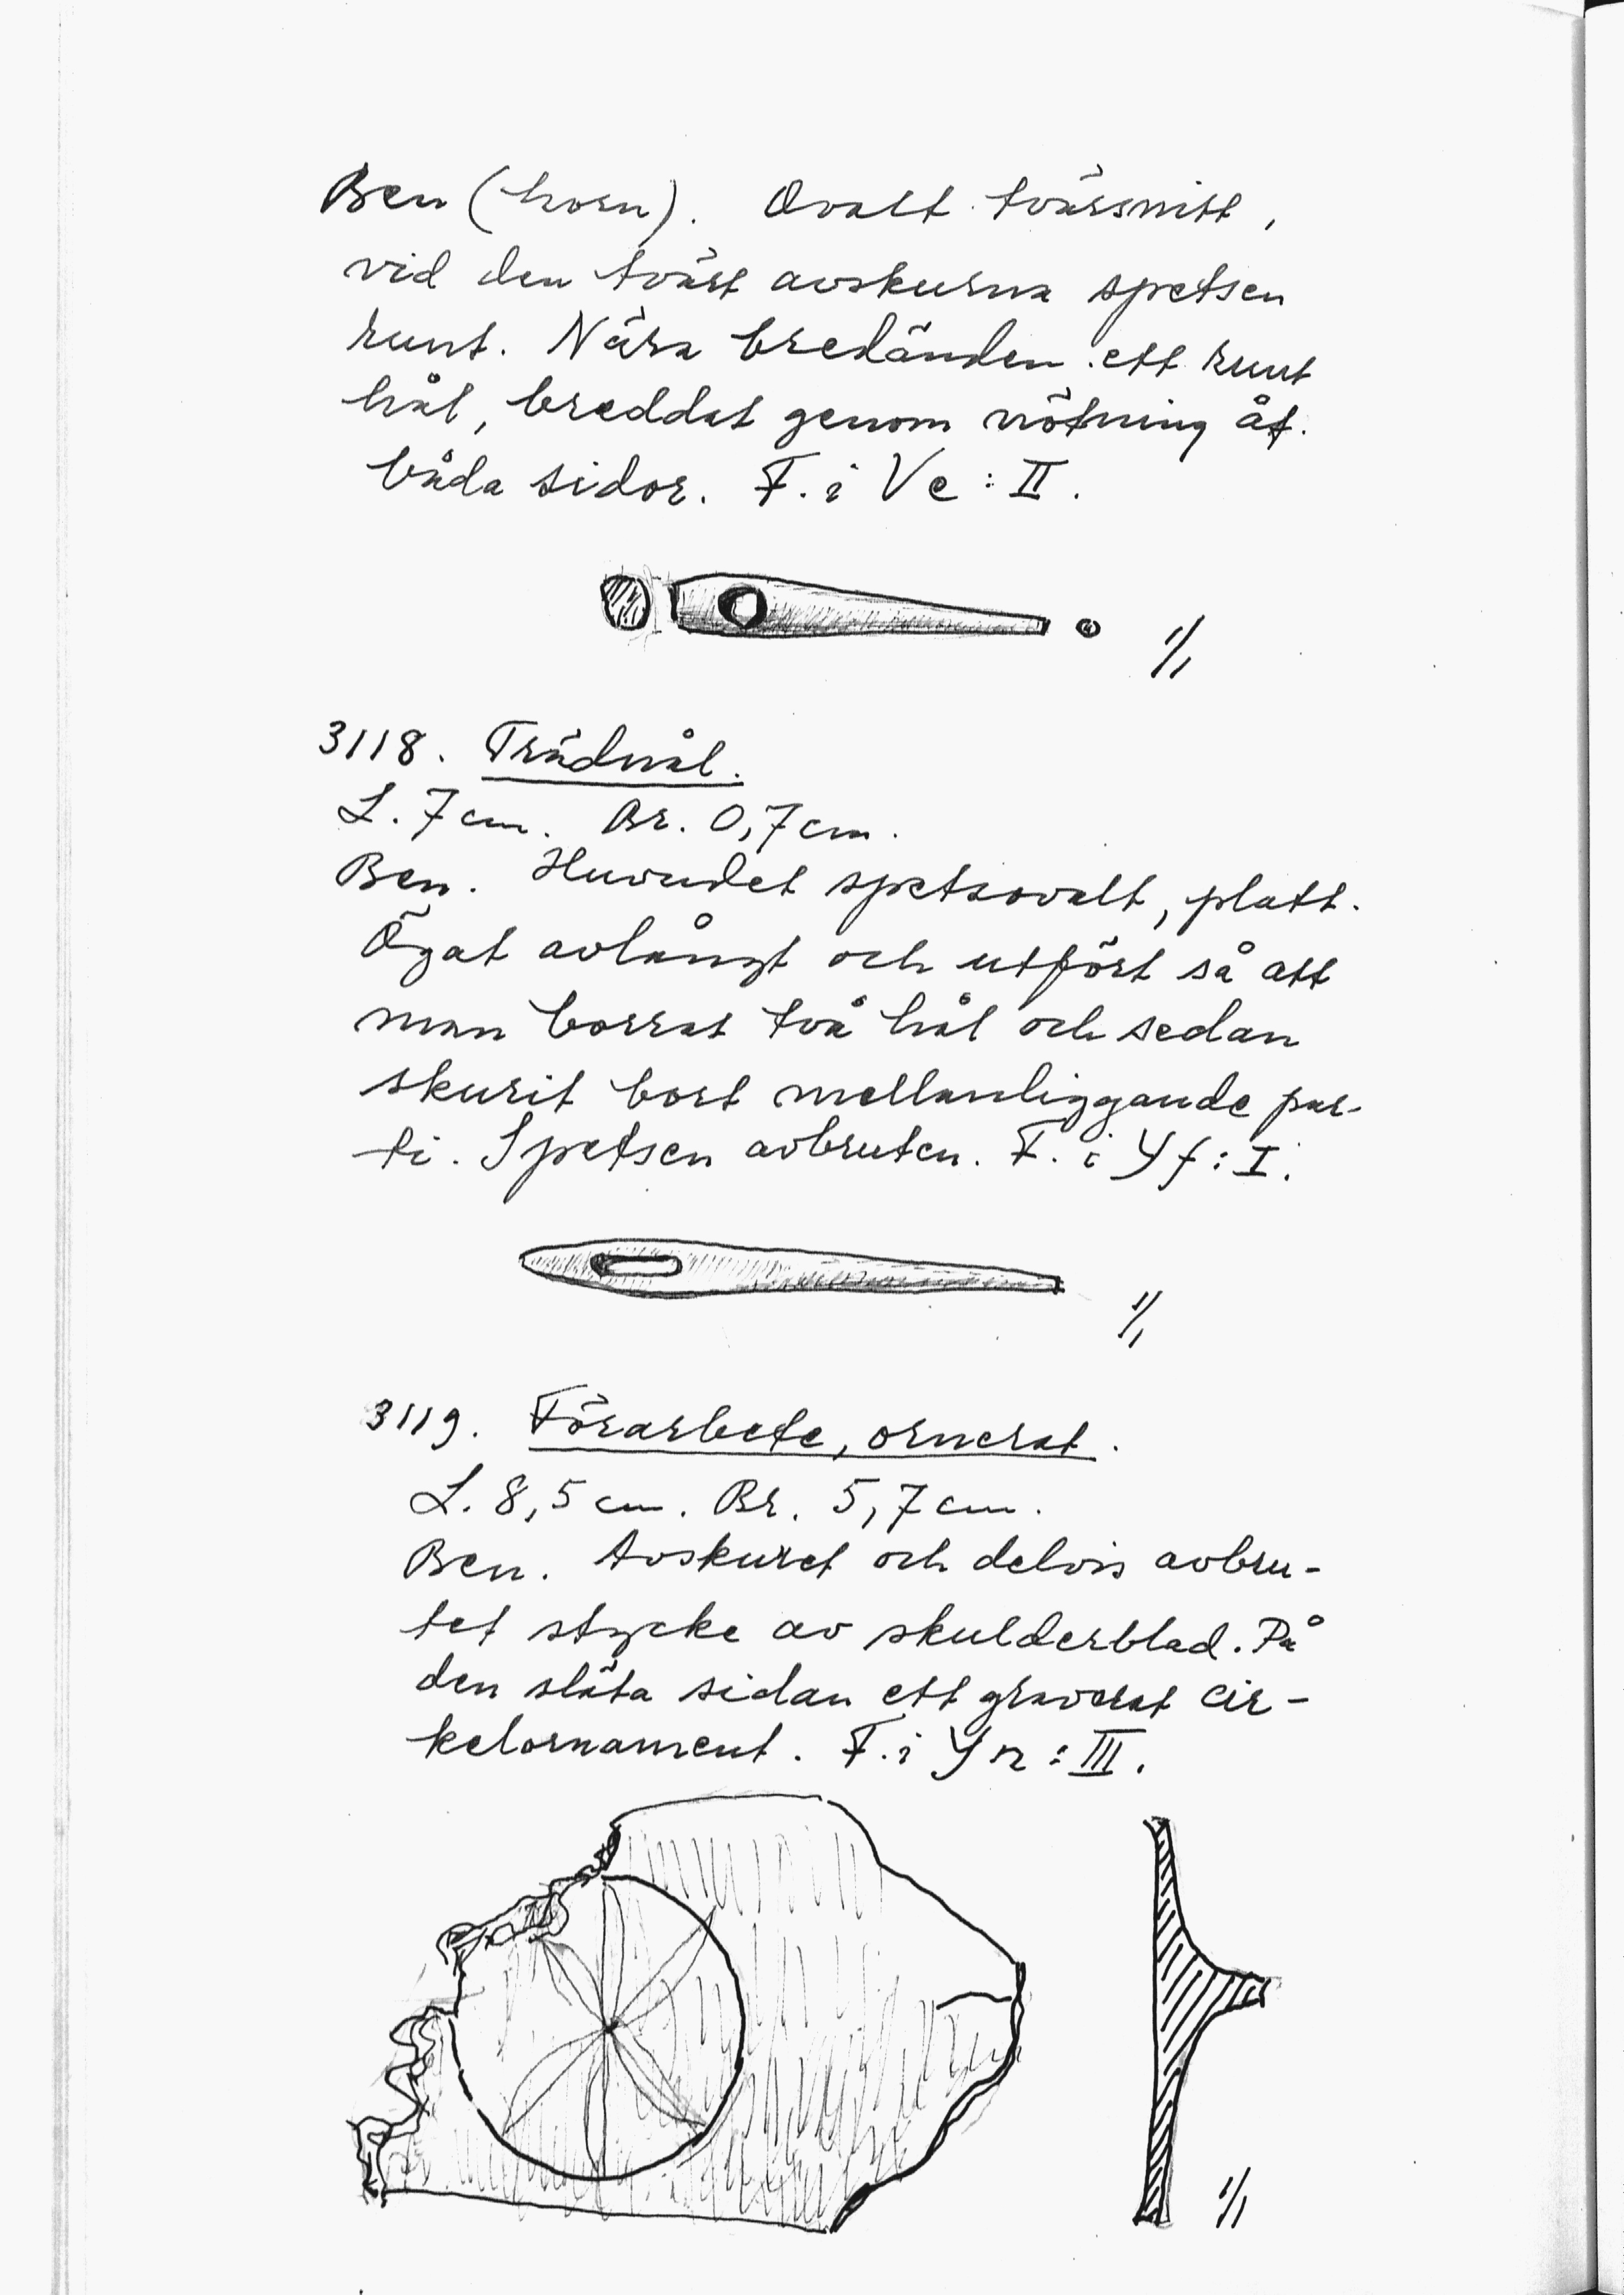 Ben (horn). Ovalt tvärsnitt,
vid den tvärt avskurna spetsen
runt. Nära bredänden ett runt
hål, breddat genom nötning åt
båda sidor. F. i Ve : II.
1/1
3118. Trådnål.
L. 7 cm. Br. 0,7 cm.
Ben. Huvudet spetsovalt, platt.
Ögat avlångt och utfört så att
man borrat två hål och sedan
skurit bort mellanliggande par-
ti. Spetsen avbruten. F. i Yf : I.
1/1
3119. Förarbete, ornerat.
L. 8,5 cm. Br. 5,7 cm.
Ben. Avskuret och delvis avbru-
tet stycke av skulderblad. På
den släta sidan ett graverat cir-
kelornament. F. i Yn : III.
1/1